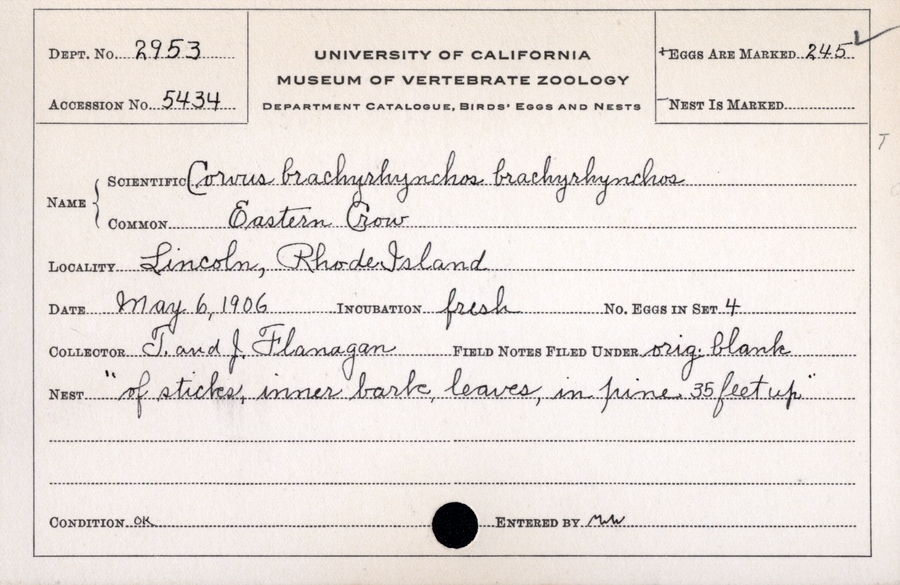 Dept. No. 2953
Accession No. 5434
UNIVERSITY OF CALIFORNIA
MUSEUM OF VERTEBRATE ZOOLOGY
Department Catalogue, Birds' Eggs and Nests
+Eggs Are Marked 245 ✓
—Nest Is Marked
T
Name { Scientific Corvus brachyrhynchos brachyrhynchos
Common Eastern Crow
Locality Lincoln, Rhode Island
Date May 6, 1906 Incubation fresh No. Eggs in Set 4
Collector T. and J. Flanagan Field Notes Filed Under orig. blank
Nest "of sticks, inner bark, leaves, in pine 35 feet up"
Condition OK Entered by